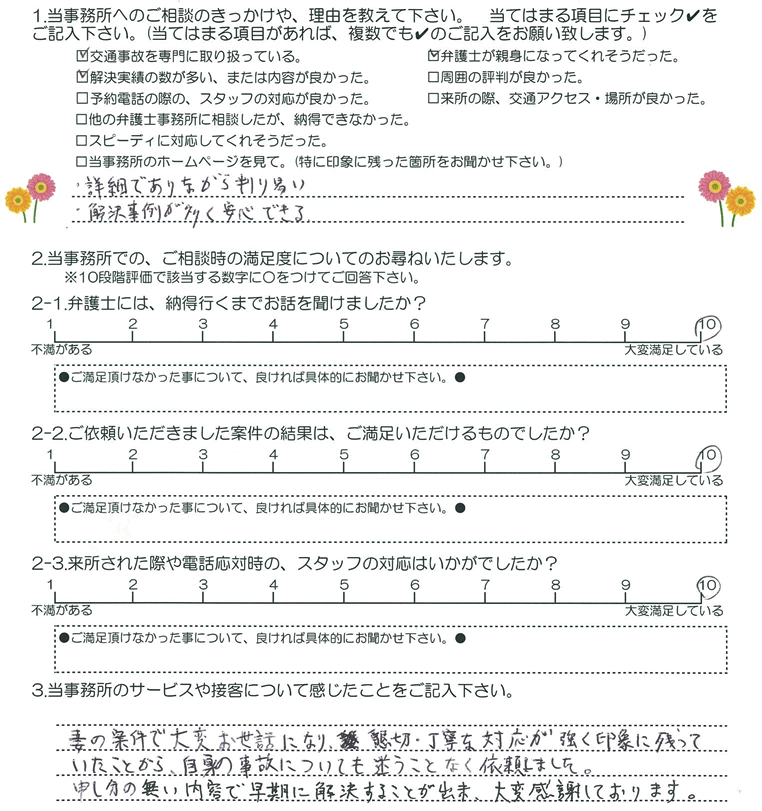 1.当事務所へのご相談のきっかけや、理由を教えて下さい。　当てはまる項目にチェック✔を
ご記入下さい。(当てはまる項目があれば、複数でも✔のご記入をお願い致します。)
☑交通事故を専門に取り扱っている。　☑弁護士が親身になってくれそうだった。
☑解決実績の数が多い、または内容が良かった。　□周囲の評判が良かった。
□予約電話の際の、スタッフの対応が良かった。　□来所の際、交通アクセス・場所が良かった。
□他の弁護士事務所に相談したが、納得できなかった。
□スピーディに対応してくれそうだった。
□当事務所のホームページを見て。(特に印象に残った箇所をお聞かせ下さい。)
・詳細でありながら判り易い
・解決事例が多く安心できる
2.当事務所での、ご相談時の満足度についてのお尋ねいたします。
※10段階評価で該当する数字に○をつけてご回答下さい。
2-1.弁護士には、納得行くまでお話を聞けましたか？
1 2 3 4 5 6 7 8 9 10
不満がある　大変満足している
●ご満足頂けなかった事について、良ければ具体的にお聞かせ下さい。●
2-2.ご依頼いただきました案件の結果は、ご満足いただけるものでしたか？
1 2 3 4 5 6 7 8 9 10
不満がある　大変満足している
●ご満足頂けなかった事について、良ければ具体的にお聞かせ下さい。●
2-3.来所された際や電話応対時の、スタッフの対応はいかがでしたか？
1 2 3 4 5 6 7 8 9 10
不満がある　大変満足している
●ご満足頂けなかった事について、良ければ具体的にお聞かせ下さい。●
3.当事務所のサービスや接客について感じたことをご記入下さい。
妻の案件で大変お世話になり、懇切・丁寧な対応が強く印象に残って
いたことから、自身の事故についても迷うことなく依頼しました。
申し分の無い内容で早期に解決することが出来、大変感謝しております。